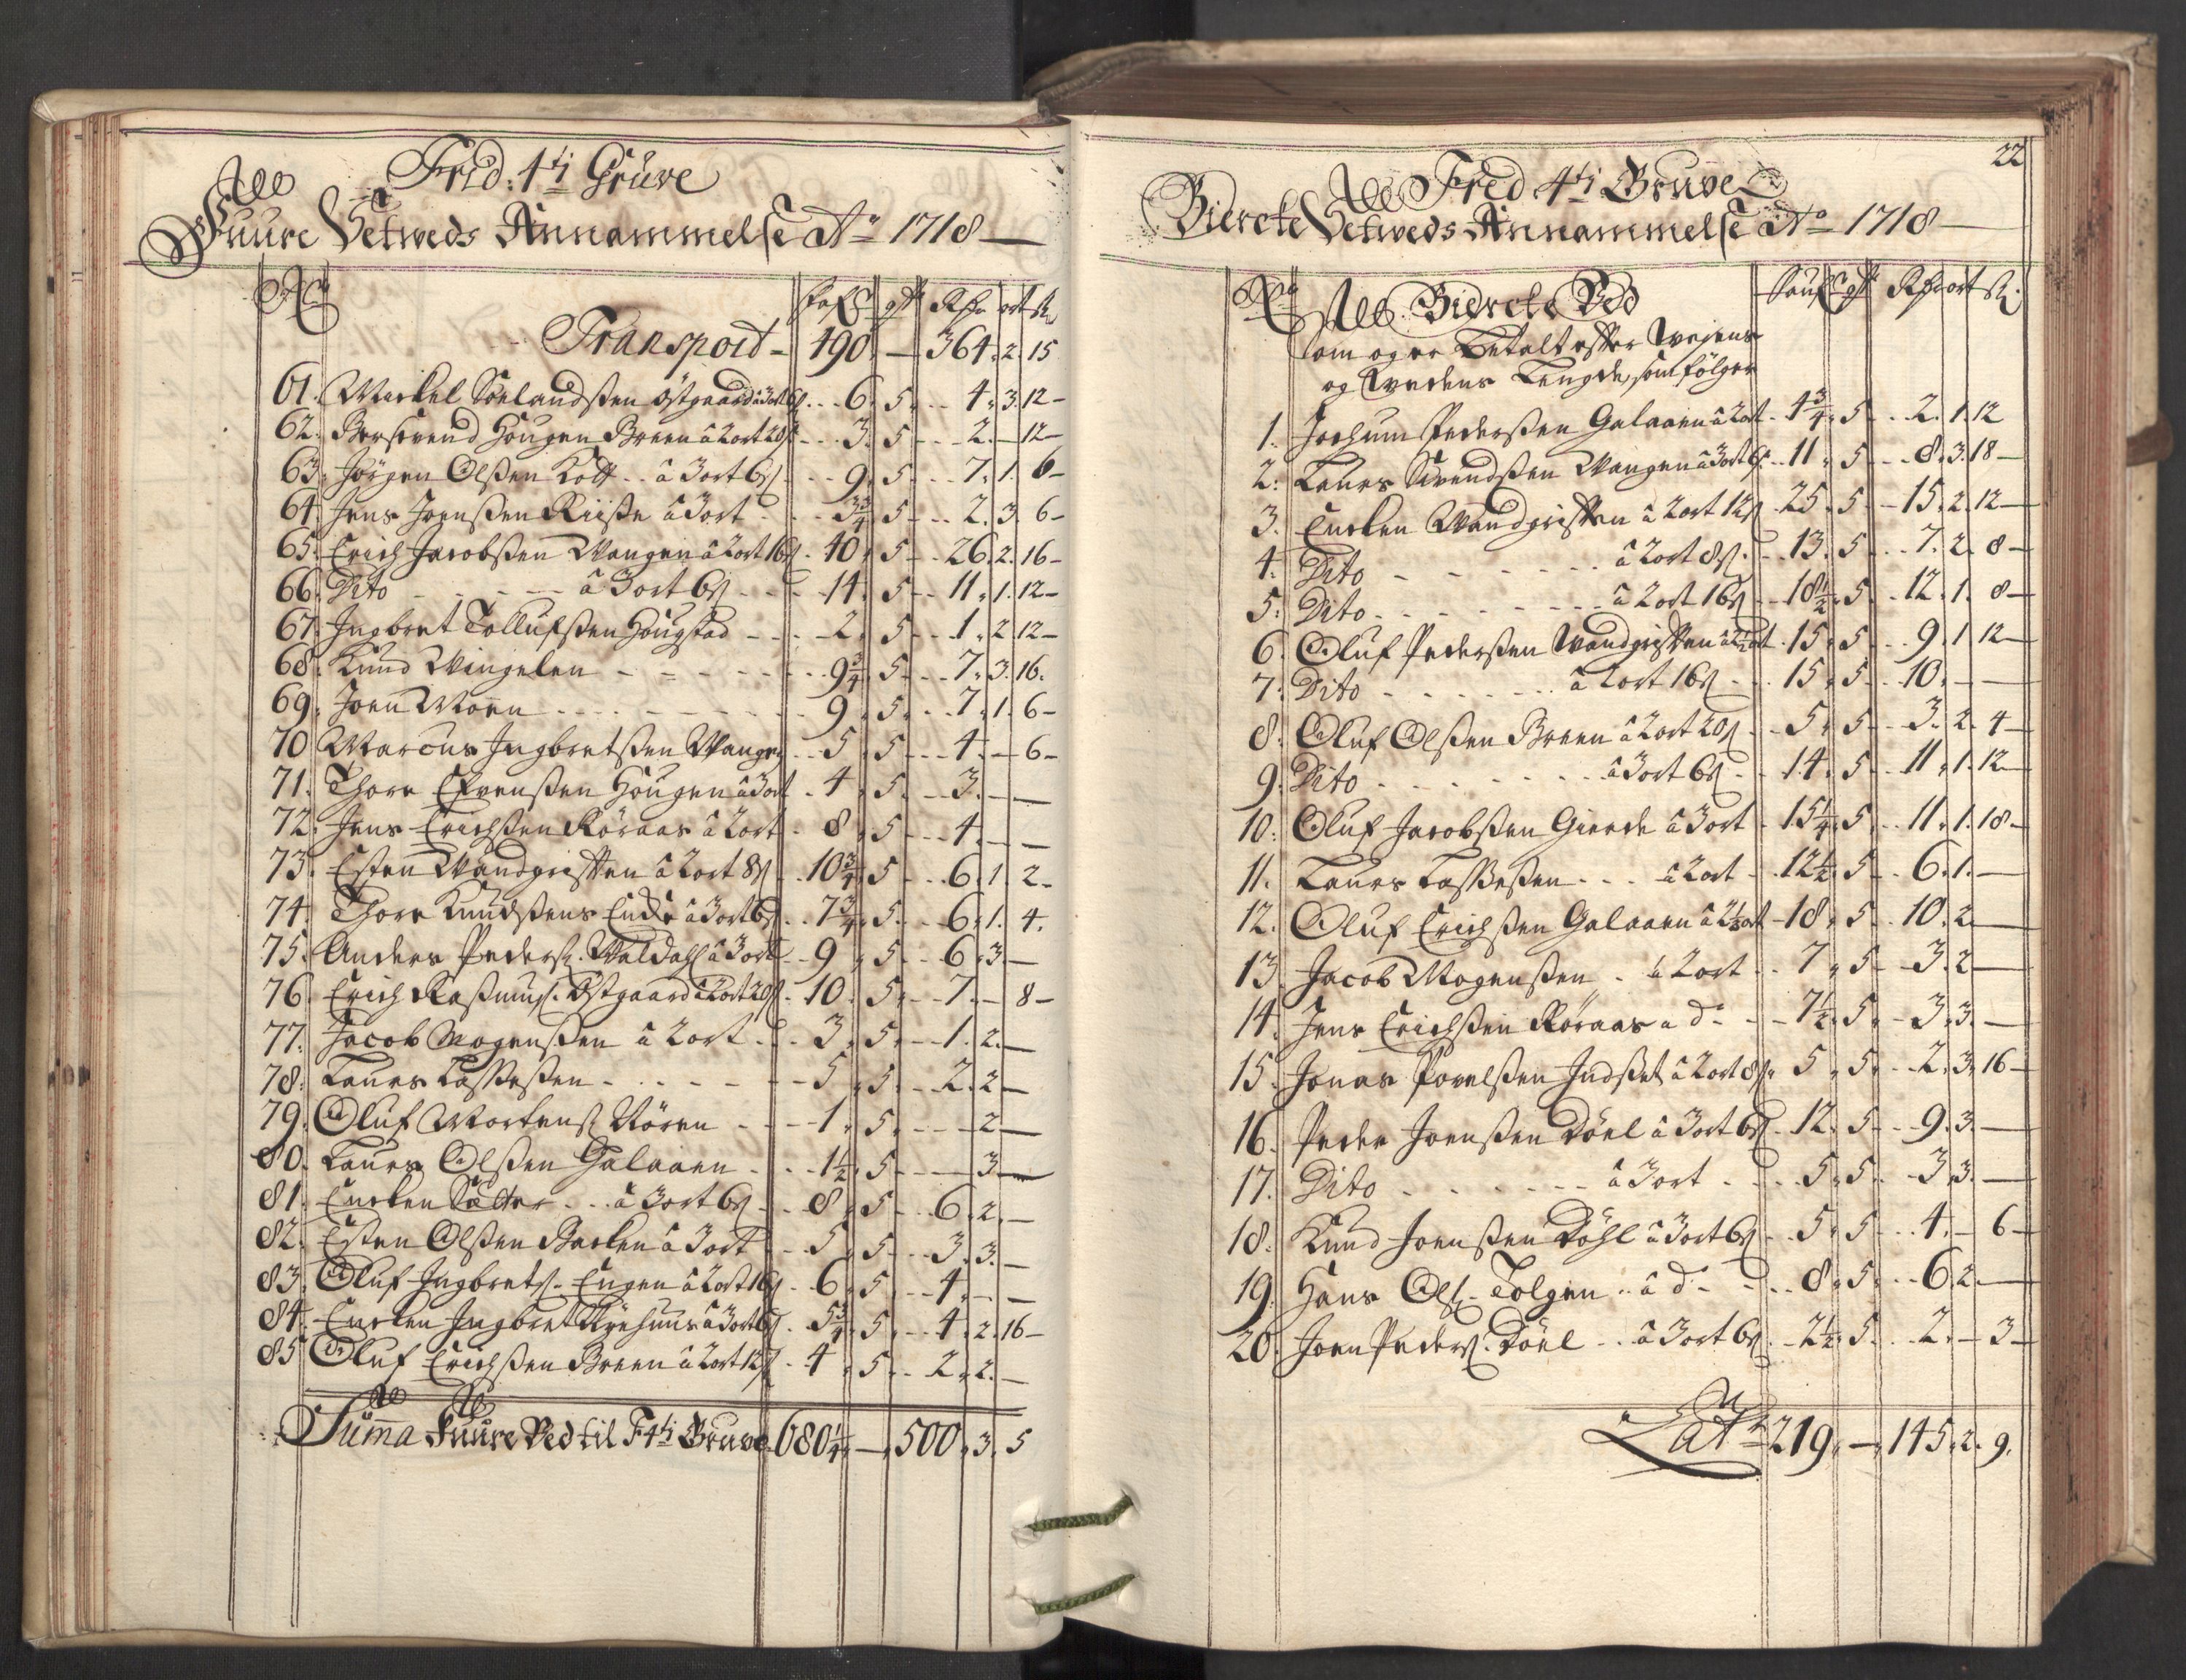 Frid: 4ti Gruve
Fuure Setweds Annammelse Ao 1718
No
fafn qt Rdr ort sk
Transport - 490 - 364. 2. 15
61. Mickel Siulandsßen Östgaard à 3ort 6s 6. 5. 4. 3. 12
62. Haugen Breen à 2ort 20s 3. 5. 2. - 12
63. Jörgen Olßen Kott à 3ort 6s 9. 5. 7. 1. 6
64. Jens Joenßen Riiße à 3ort 3¾. 5. 2. 3. 6
65. Erich Jacobßen Wangen à 2ort 16s 40. 5. 26. 2. 16
66. Dito à 3ort 6s 14. 5. 11. 1. 12
67. Ingbret Tollufsßen Hougstad 2. 5. 1. 2. 12
68. Knud Wingelen 9¾. 5. 7. 3. 16.
69. Joen Moen 9. 5. 7. 1. 6
70 Marcus Ingbretsßen Wangen 5. 5. 4. - 6
71. Thore Efvensßen Hougen à 3ort 4. 5. 3. - -
72. Jens Erichsßen Röraas à 2ort 8. 5. 4. - -
73. Esten Wandgrifften à 2ort 8s 10¾. 5. 6. 1. 2.
74. Thore Knudsßens Encke à 3ort 6s 7¾. 5. 6. 1. 4.
75. Anders Pedersß. Waldahl à 3ort 9. 5. 6. 3. -
76. Erich Raßmusß. Östgaard à 2ort 20s 10. 5. 7. - 8
77. Jacob Mogensßen à 2ort 3. 5. 1. 2. -
78. Laurs Lasseßen 5. 5. 2. 2 -
79. Oluf Mortensß Nören 1. 5. - 2 -
80. Laurs Olßen Galaaen 1½. 5. - 3 -
81. Encken Sætter à 3ort 6s 8. 5. 6. 2. -
82. Esten Olßen Backen à 3ort 5. 5. 3. 3. -
83. Oluf Ingbretsß. Engen à 2ort 16s 6. 5. 4. - -
84. Encken Ingbret Nyehuus à 3ort 6s 5¾. 5. 4. 2. 16
85 Oluf Erichsßen Breen à 2ort 12s 4. 5. 2. 2. -
Summa Fuure Ved til F 4ti Gruve 680¼. - 500. 3. 5
22
Fred 4ti Gruve
Biercke Setweds Annammelse Ao 1718
No
Biercke Ved
faufn qt Rdr ort sk
som og er Betalt effter Weyens
og Wedens Lengde, som fölger
1. Jochum Pedersßen Galaaen à 2ort 4¾. 5. 2. 1. 12
2. Laurs Sivendsßen Wangen à 3ort 6s 11. 5. 8. 3. 18
3. Encken Wandgrifften à 2ort 12s 25. 5. 15. 2. 12
4. Dito à 2ort 8s 13. 5. 7. 2. 8
5. Dito à 2ort 16s 18½. 5. 12. 1. 8
6. Oluf Pedersßen Wandgrifften à 2½ort 15. 5. 9. 1. 12
7. Dito à 2ort 16s 15. 5. 10. - -
8. Oluf Olßen Breen à 2ort 20s 5. 5. 3. 2. 4
9. Dito à 3ort 6s 14. 5. 11. 1. 12
10. Oluf Jacobsßen Gierde à 3ort 15¼. 5. 11. 1. 18
11. Laurs Lasseßen à 2ort 12½. 5. 6. 1. -
12. Oluf Erichsßen Galaaen à 2⅓ort 18. 5. 10. 2 -
13. Jacob Mogensßen à 2ort 7. 5. 3. 2 -
14. Jens Erichsßen Röraas a do 7½. 5. 3. 3. -
15. Jonas Povelsßen Indset à 2ort 8s 5. 5. 2. 3. 16
16. Peder Joensßen Döel à 3ort 6s 12. 5. 9. 3. -
17. Dito à 3ort 5. 5. 3. 3. -
18. Knud Joensßen Döhl à 3ort 6s 5. 5. 4. - 6
19. Hans Olß. Tolgen à do 8. 5. 6. 2. -
20. Joen Pedersß. Döel à 3ort 6s 2½. 5. 2. - 3
Lat 219. - 145. 2. 9.